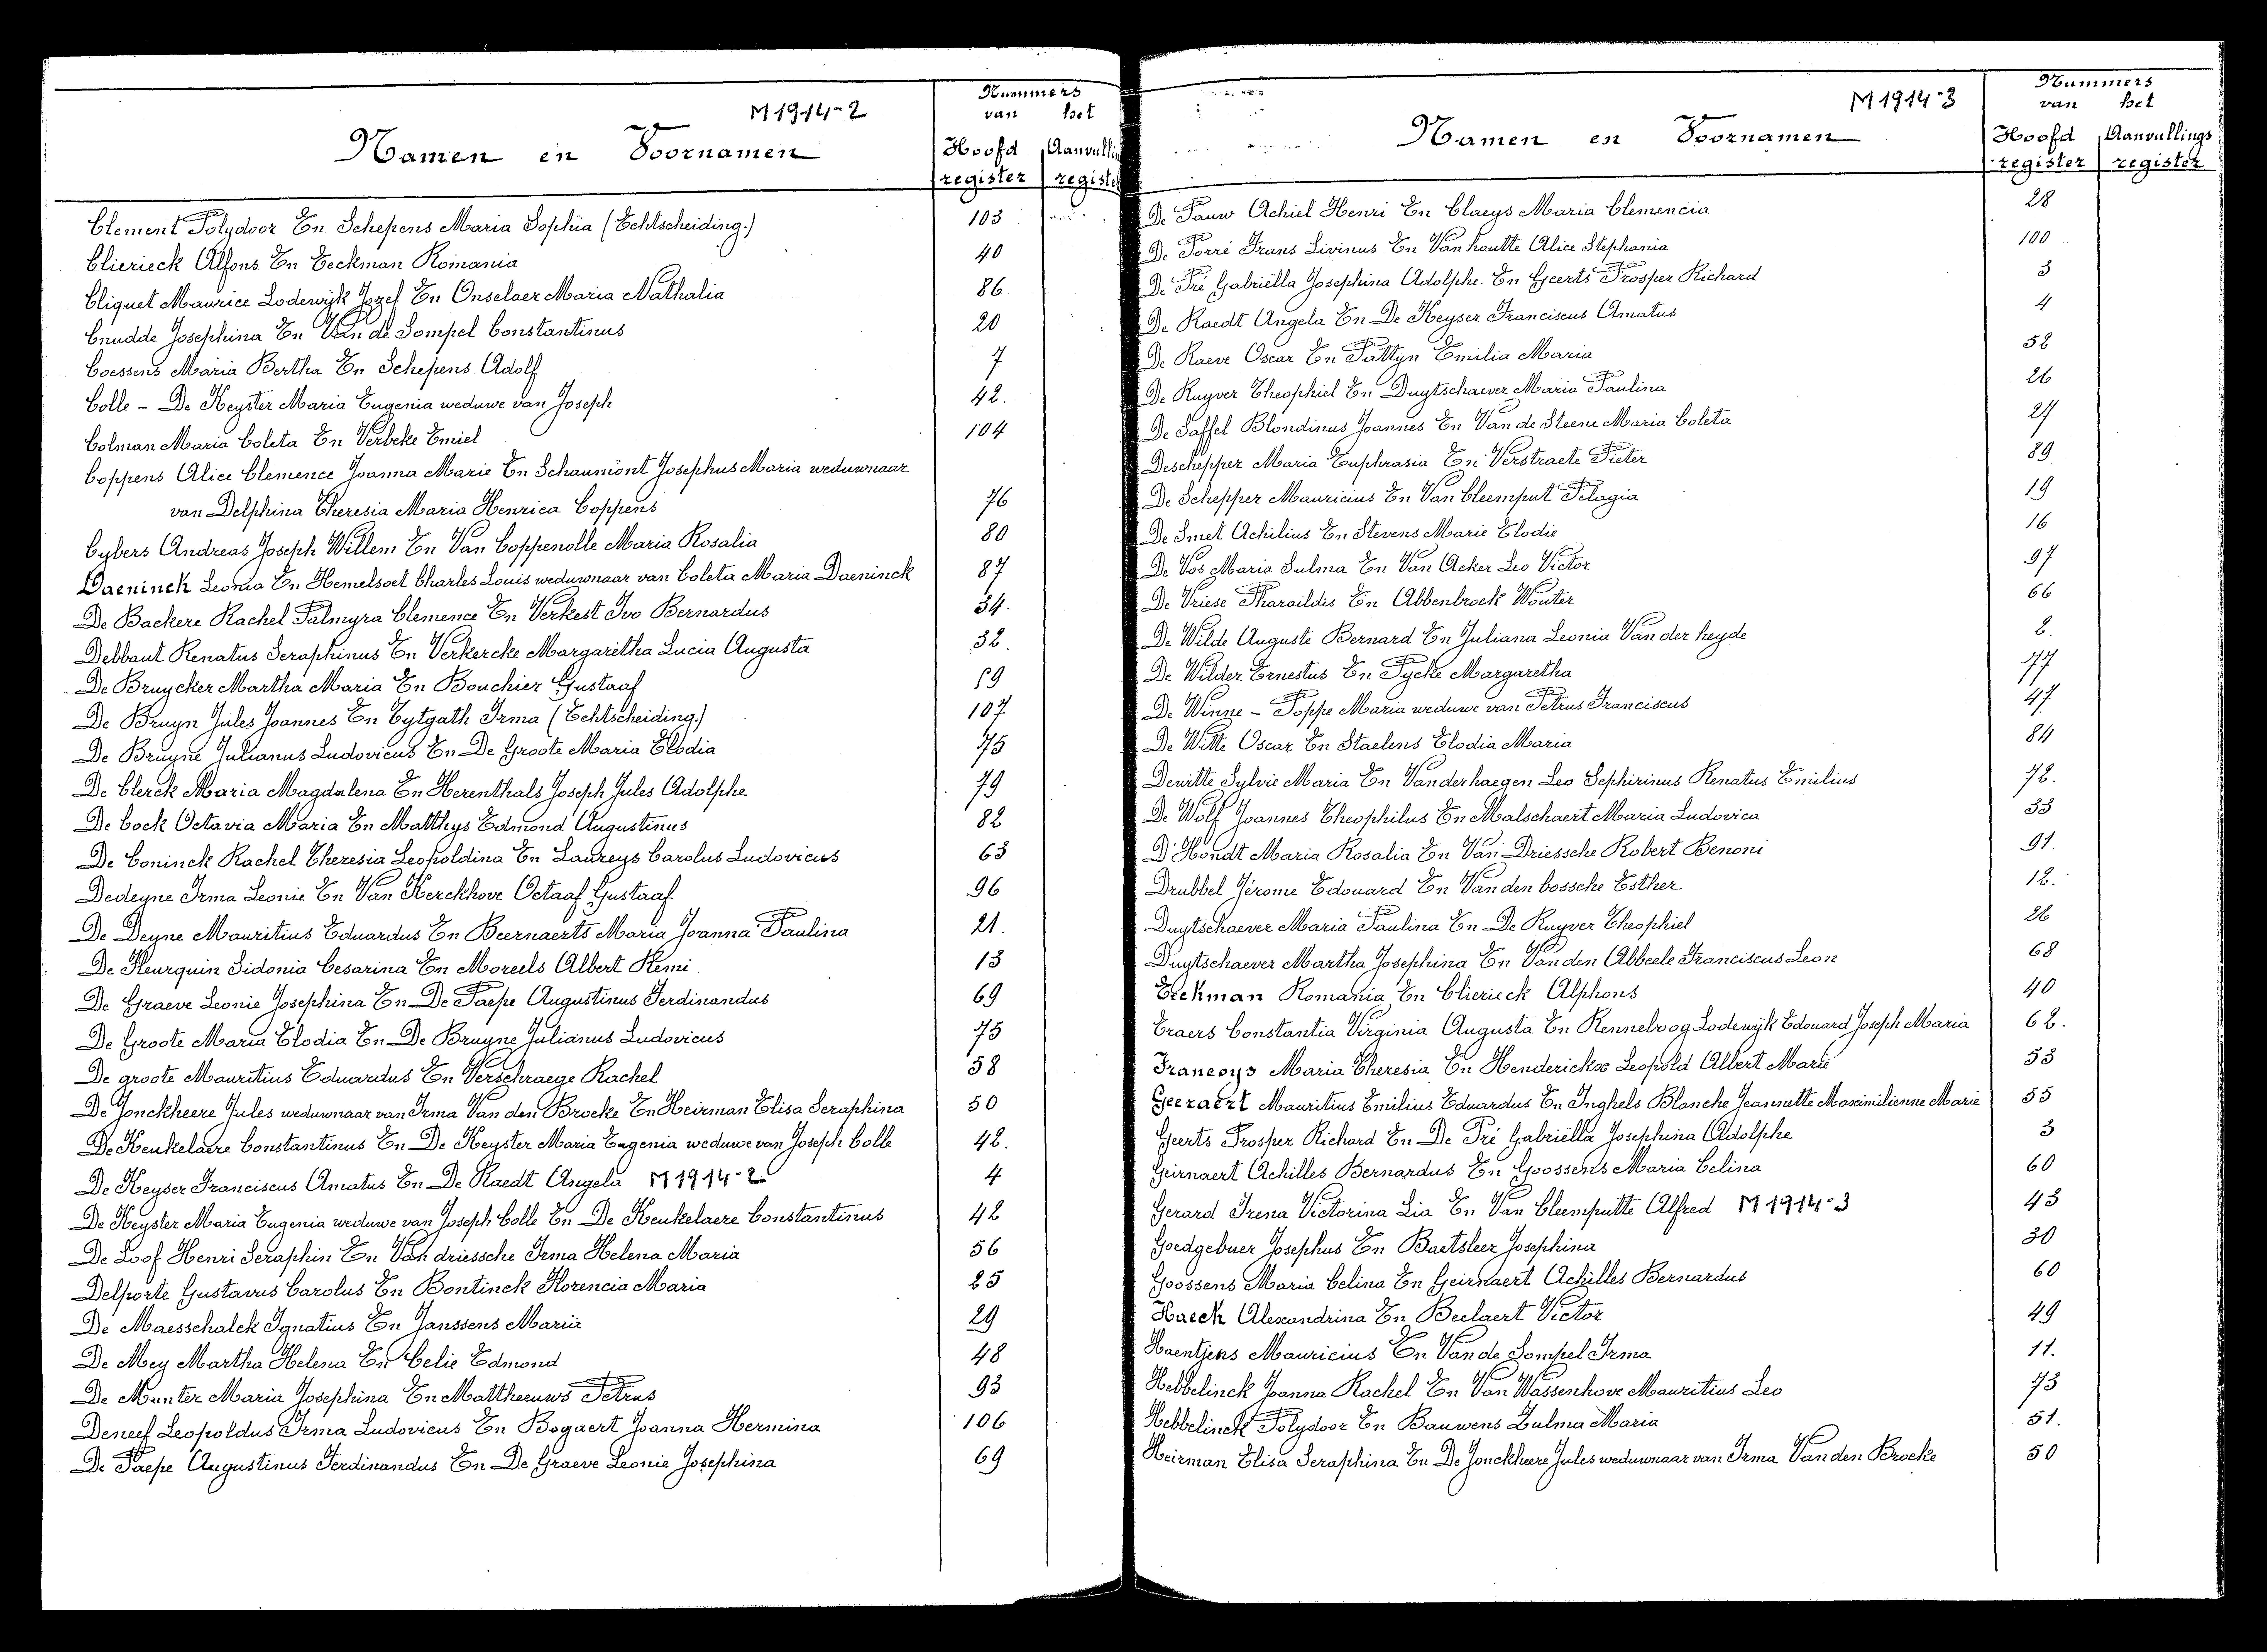 M 1914-2
Nummers
van het
Namen en Voornamen
Hoofd Aanvulli
register registe
Clement Polydoor En Schepens Maria Sophia (Echtscheiding.) 103
Clierieck Alfons En Eeckman Romania 40
Cliquet Maurice Lodewijk Jozef En Onselaer Maria Nathalia 86
Cnudde Josephina En Van de Sompel Constantinus 20
Coessens Maria Bertha En Schepens Adolf 7
Colle - De Keyster Maria Eugenia weduwe van Joseph 42.
Colman Maria Coleta En Verbeke Emiel 104
Coppens Alice Clemence Joanna Marie En Schaumont Josephus Maria weduwnaar
van Delphina Theresia Maria Henrica Coppens 76
Cybers Andreas Joseph Willem En Van Coppenolle Maria Rosalia 80
Daeninck Leonia En Hemelsoet Charles Louis weduwnaar van Coleta Maria Daeninck 87
De Backere Rachel Palmyra Clemence En Verkest Ivo Bernardus 34.
Debbaut Renatus Seraphinus En Verkercke Margaretha Lucia Augusta 32.
De Bruycker Martha Maria En Bouchier Gustaaf 59
De Bruyn Jules Joannes En Tytgath Irma (Echtscheiding.) 107
De Bruyne Julianus Ludovicus En De Groote Maria Elodia 75
De Clerck Maria Magdalena En Herenthals Joseph Jules Adolphe 79
De Cock Octavia Maria En Matthys Edmond Augustinus 82
De Coninck Rachel Theresia Leopoldina En Laureys Carolus Ludovicus 63
Dedeyne Irma Leonie En Van Kerckhove Octaaf Gustaaf 96
De Deyne Mauritius Eduardus En Beernaerts Maria Joanna Paulina 21.
De Fleurquin Sidonia Cesarina En Moreels Albert Remi 13
De Graeve Leonie Josephina En De Paepe Augustinus Ferdinandus 69
De Groote Maria Elodia En De Bruyne Julianus Ludovicus 75
De groote Mauritius Eduardus En Verschraege Rachel 58
De Jonckheere Jules weduwnaar van Irma Van den Broeke En Heirman Elisa Seraphina 50
De Keukelaere Constantinus En De Keyster Maria Eugenia weduwe van Joseph Colle 42.
De Keyser Franciscus Amatus En De Raedt Angela M 1914-2 4
De Keyster Maria Eugenia weduwe van Joseph Colle En De Keukelaere Constantinus 42
De Loof Henri Seraphin En Van driessche Irma Helena Maria 56
Delporte Gustavus Carolus En Bontinck Florencia Maria 25
De Maesschalck Ignatius En Janssens Maria 29
De Mey Martha Helena En Celie Edmond 48
De Munter Maria Josephina En Mattheeuws Petrus 93
Deneef Leopoldus Irma Ludovicus En Bogaert Joanna Hermina 106
De Paepe Augustinus Ferdinandus En De Graeve Leonie Josephina 69
M 1914-3
Nummers
van het
Namen en Voornamen
Hoofd Aanvullings
register register
De Pauw Achiel Henri En Claeys Maria Clemencia 28
De Porré Frans Livinus En Van houtte Alice Stephania 100
De Pré Gabriëlla Josephina Adolphe. En Geerts Prosper Richard 3
De Raedt Angela En De Keyser Franciscus Amatus 4
De Raeve Oscar En Pattyn Emilia Maria 52
De Ruyver Theophiel En Duytschaever Maria Paulina 26
De Saffel Blondinus Joannes En Van de Steene Maria Coleta 27
Deschepper Maria Euphrasia En Verstraete Pieter 89
De Schepper Mauricius En Van Cleemput Pelagia 19
De Smet Achilius En Stevens Marie Elodie 16
De Vos Maria Sulma En Van Acker Leo Victor 97
De Vriese Pharaildis En Abbenbroek Wouter 66
De Wilde Auguste Bernard En Juliana Leonia Van der heyde 2.
De Wilder Ernestus En Pycke Margaretha 77
De Winne - Poppe Maria weduwe van Petrus Franciscus 47
De Witte Oscar En Staelens Elodia Maria 84
Dewitte Sylvie Maria En Vanderhaegen Leo Sephirinus Renatus Emilius 72.
De Wolf Joannes Theophilus En Malschaert Maria Ludovica 33
D'Hondt Maria Rosalia En Van Driessche Robert Benoni 91.
Drubbel Jérome Edouard En Van den bossche Esther 12.
Duytschaever Maria Paulina En De Ruyver Theophiel 26
Duytschaever Martha Josephina En Van den Abbeele Franciscus Leon 68
Eeckman Romania En Clierieck Alphons 40
Eraers Constantia Virginia Augusta En Renneboog Lodewijk Edouard Joseph Maria 62.
Francoys Maria Theresia En Henderickx Leopold Albert Marie 53
Geeraert Mauritius Emilius Eduardus En Inghels Blanche Jeannette Maximilienne Marie 55
Geerts Prosper Richard En De Pré Gabriëlla Josephina Adolphe 3
Geirnaert Achilles Bernardus En Goossens Maria Celina 60
Gerard Irena Victorina Lia En Van Cleemputte Alfred M 1914-3 43
Goedgebuer Josephus En Baetsleer Josephina 30
Goossens Maria Celina En Geirnaert Achilles Bernardus 60
Haeck Alexandrina En Beelaert Victor 49
Haentjens Mauricius En Van de Sompel Irma 11.
Hebbelinck Joanna Rachel En Van Wassenhove Mauritius Leo 73
Hebbelinck Polydoor En Bauwens Zulma Maria 51.
Heirman Elisa Seraphina En De Jonckheere Jules weduwnaar van Irma Van den Broeke 50